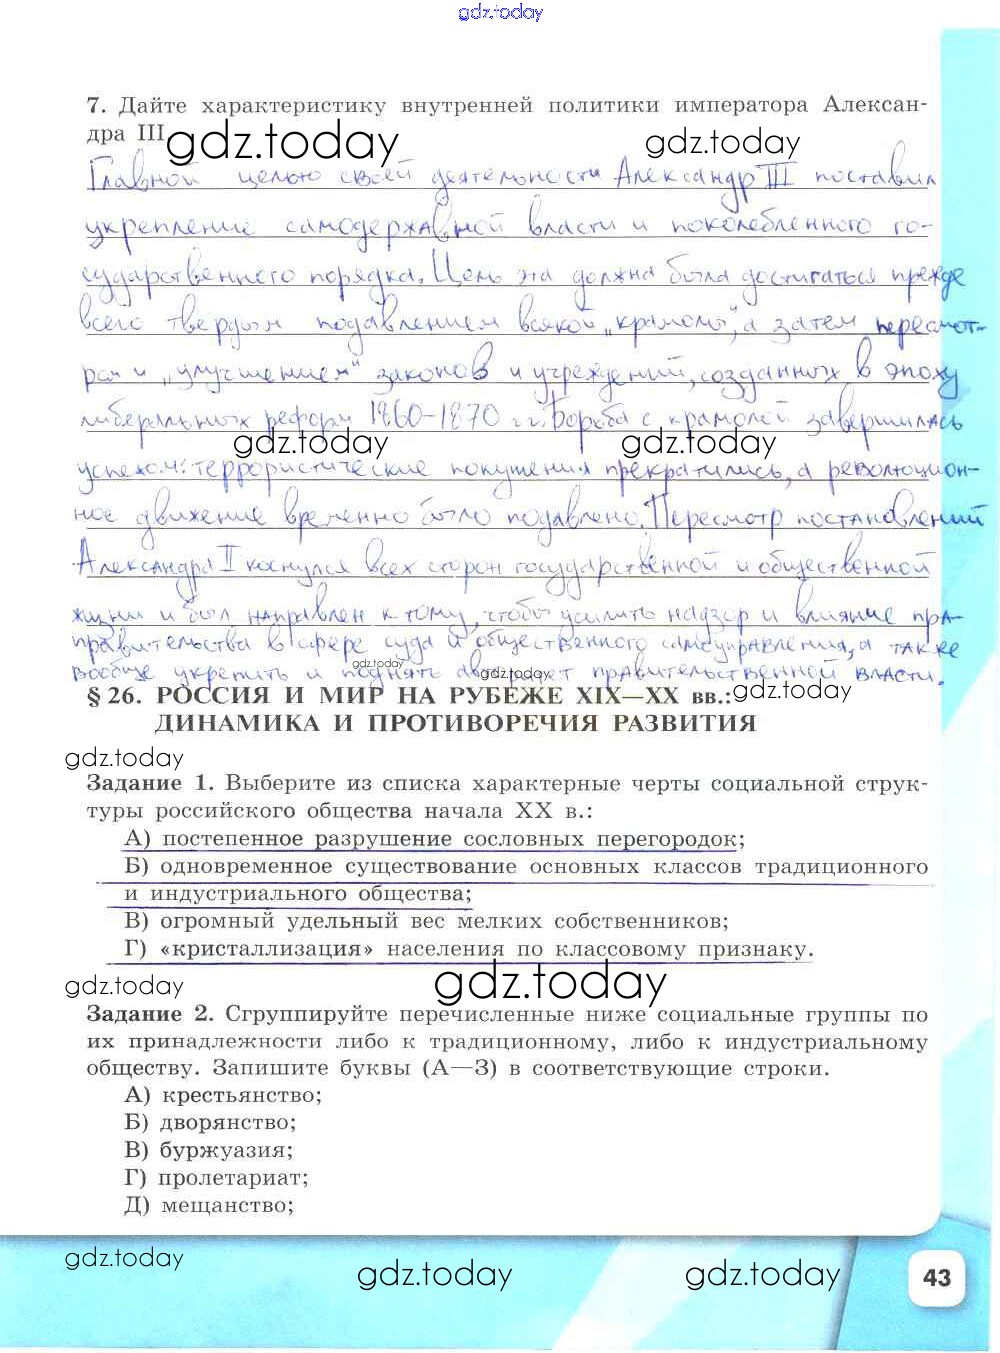 gdz.today
7. Дайте характеристику внутренней политики императора Алексан-
дра III
gdz.today gdz.today
Главной целью своей деятельности Александр III поставил
укрепление самодержавной власти и поколебленного го-
сударственного порядка. Цель эта должна была достигаться прежде
всего твердым подавлением всякой „крамолы", а затем пересмот-
ром и „улучшением" законов и учреждений, созданных в эпоху
либеральных реформ 1860-1870 гг. Борьба с крамолой завершилась
gdz.today gdz.today
успехом: террористические покушения прекратились, а революцион-
ное движение временно было подавлено. Пересмотр постановлений
Александра II коснулся всех сторон государственной и общественной
жизни и был направлен к тому, чтобы усилить надзор и влияние пра-
правительства в сфере суда и общественного самоуправления, а также
gdz.today gdz.today
вообще укрепить и поднять авторитет правительственной власти.
§ 26. РОССИЯ И МИР НА РУБЕЖЕ XIX—XX вв.: gdz.today
ДИНАМИКА И ПРОТИВОРЕЧИЯ РАЗВИТИЯ
gdz.today
Задание 1. Выберите из списка характерные черты социальной струк-
туры российского общества начала XX в.:
А) постепенное разрушение сословных перегородок;
Б) одновременное существование основных классов традиционного
и индустриального общества;
В) огромный удельный вес мелких собственников;
Г) «кристаллизация» населения по классовому признаку.
gdz.today gdz.today
Задание 2. Сгруппируйте перечисленные ниже социальные группы по
их принадлежности либо к традиционному, либо к индустриальному
обществу. Запишите буквы (А—З) в соответствующие строки.
А) крестьянство;
Б) дворянство;
В) буржуазия;
Г) пролетариат;
Д) мещанство;
gdz.today gdz.today gdz.today
43